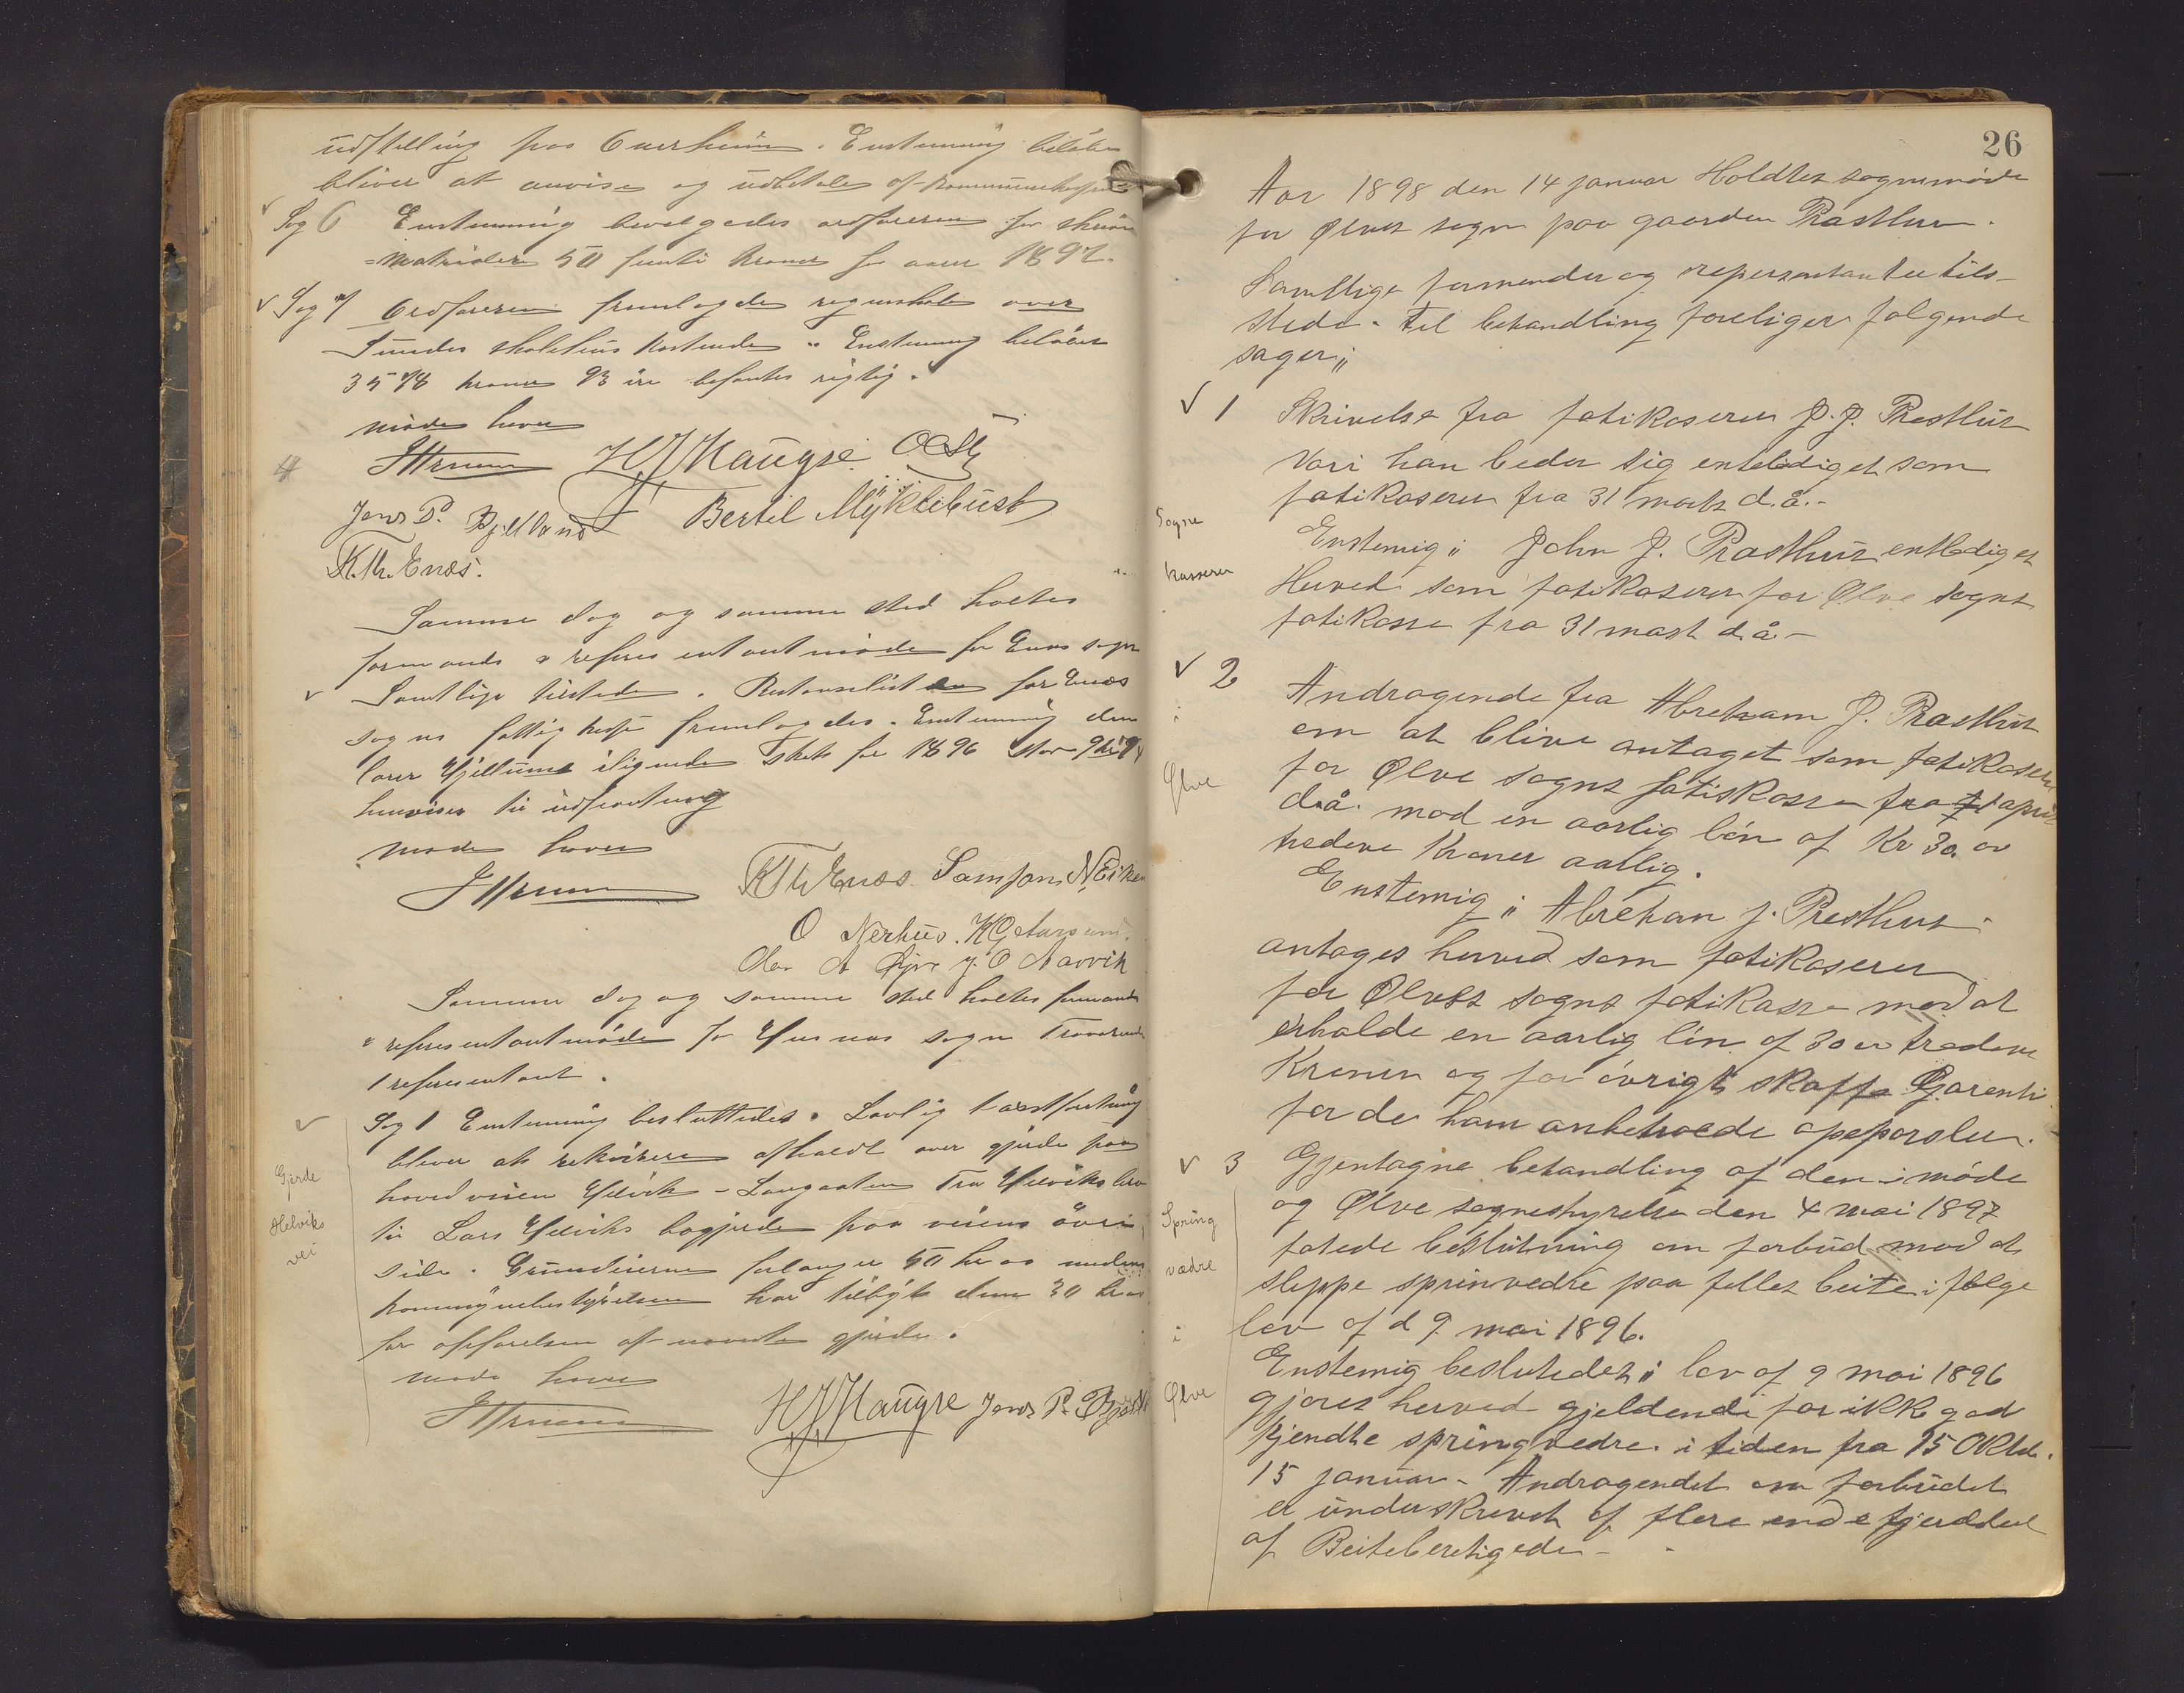 udstilling paa Qverheim. Enstemmig beløbet
bliver at anvise og udbetale af kommunekassen
Sag 6 Enstemmig bevelgedes ordføreren for skriv
=matrialer 50 femti kroner for aaret 1897.
Sag 7 Ordføreren fremlagde regnskab over
Sundes skolehus kostende " Enstemmig beløbet
3578 kroner 93 øre befantes rigtig.
møde hævet
H J Haugse
Jens P. Bjelland Bertil Myklebust
K. Th. Enæs.
Samme dag og samme sted holtes
formands & representantmøde for Enæs sogn
Samtlige tilstede. Restanselisten for Enæs
sogns fattigkasse fremlagdes. Enstemmig den
skat for 1896
henvises til udpantning
møde hævet
K Th Enæs Samson N Eike
O Nerhus. K G Aarsand.
Ola A Øjre J. O Aarvik
Samme dag og samme sted holtes formands
& representantmøde for Husnæs sogn Fraværende
1 representant.
Sag 1 Enstemmig besluttedes. Lovlig takstforretning
Gjerde
bliver at rekvirere afholdt over gjerde paa
hovedveien Helvik - Langaaten fra Helviks
Helviks
til Lars Helviks bøgjerde paa veiens øvre
vei
side. Grundeierne forlanger 50 kr os medens
kommunebestyrelsen har tilbydt dem 30 kr os
for opførelsen af nævnte gjerde.
møde hævet
H J Haugse Jens P. Bjelland
26
Aar 1898 den 14 januar Holdtes sognemøde
for Ølves sogn paa gaardenRæsthus.
Samtlige formender og representanter tils-
stede. Til behandling foreliger følgende
sager;,
1 Skrivelse fra fatikaserer J. J. Presthus
vori han beder sig entelediget som
fatikaserer fra 31 marts d.å.-
Sogne
Enstemig; John J. Præsthus entlediges
kasserer
Herved som fatikaserer for Ølve sogns
fatikasse fra 31 mast d.å.-
2 Andragende fra Abreham J. Præsthus
i
om at blive antaget som fatikaserer
Ølve
for Ølve sogns fatiskasse fra 1 april
d.å. mod en aarlig løn af Kr 30. os
tredeve Kroner aarlig.
Enstemig; Abreham J. Presthus
antages herved som fatikaserer
for Ølves sogns fatikasse mod at
erholde en aarlig løn af 30 os tredeve
Kroner og for øvrigt skaffe Gjarenti
for de ham anbetroede opeporsler.
3 Gjentagne behandling af den i møde
og Ølve sognestyrelse den 4 mai 1897
Spring
fatede beslutning om forbud mod at
vædre
sleppe sprinvedre paa felles beite i følge
i
lov af d 9 mai 1896.
Enstemig beslutedes; lov af 9 mai 1896
Ølve
gjøres herved gjeldende for ikke god
kjendte springvedre. i tiden fra 15 Oktb.
15 januar - Andragendet om forbudet
er underskrevet af flere end e fjerddel
af Beiteberetigede -